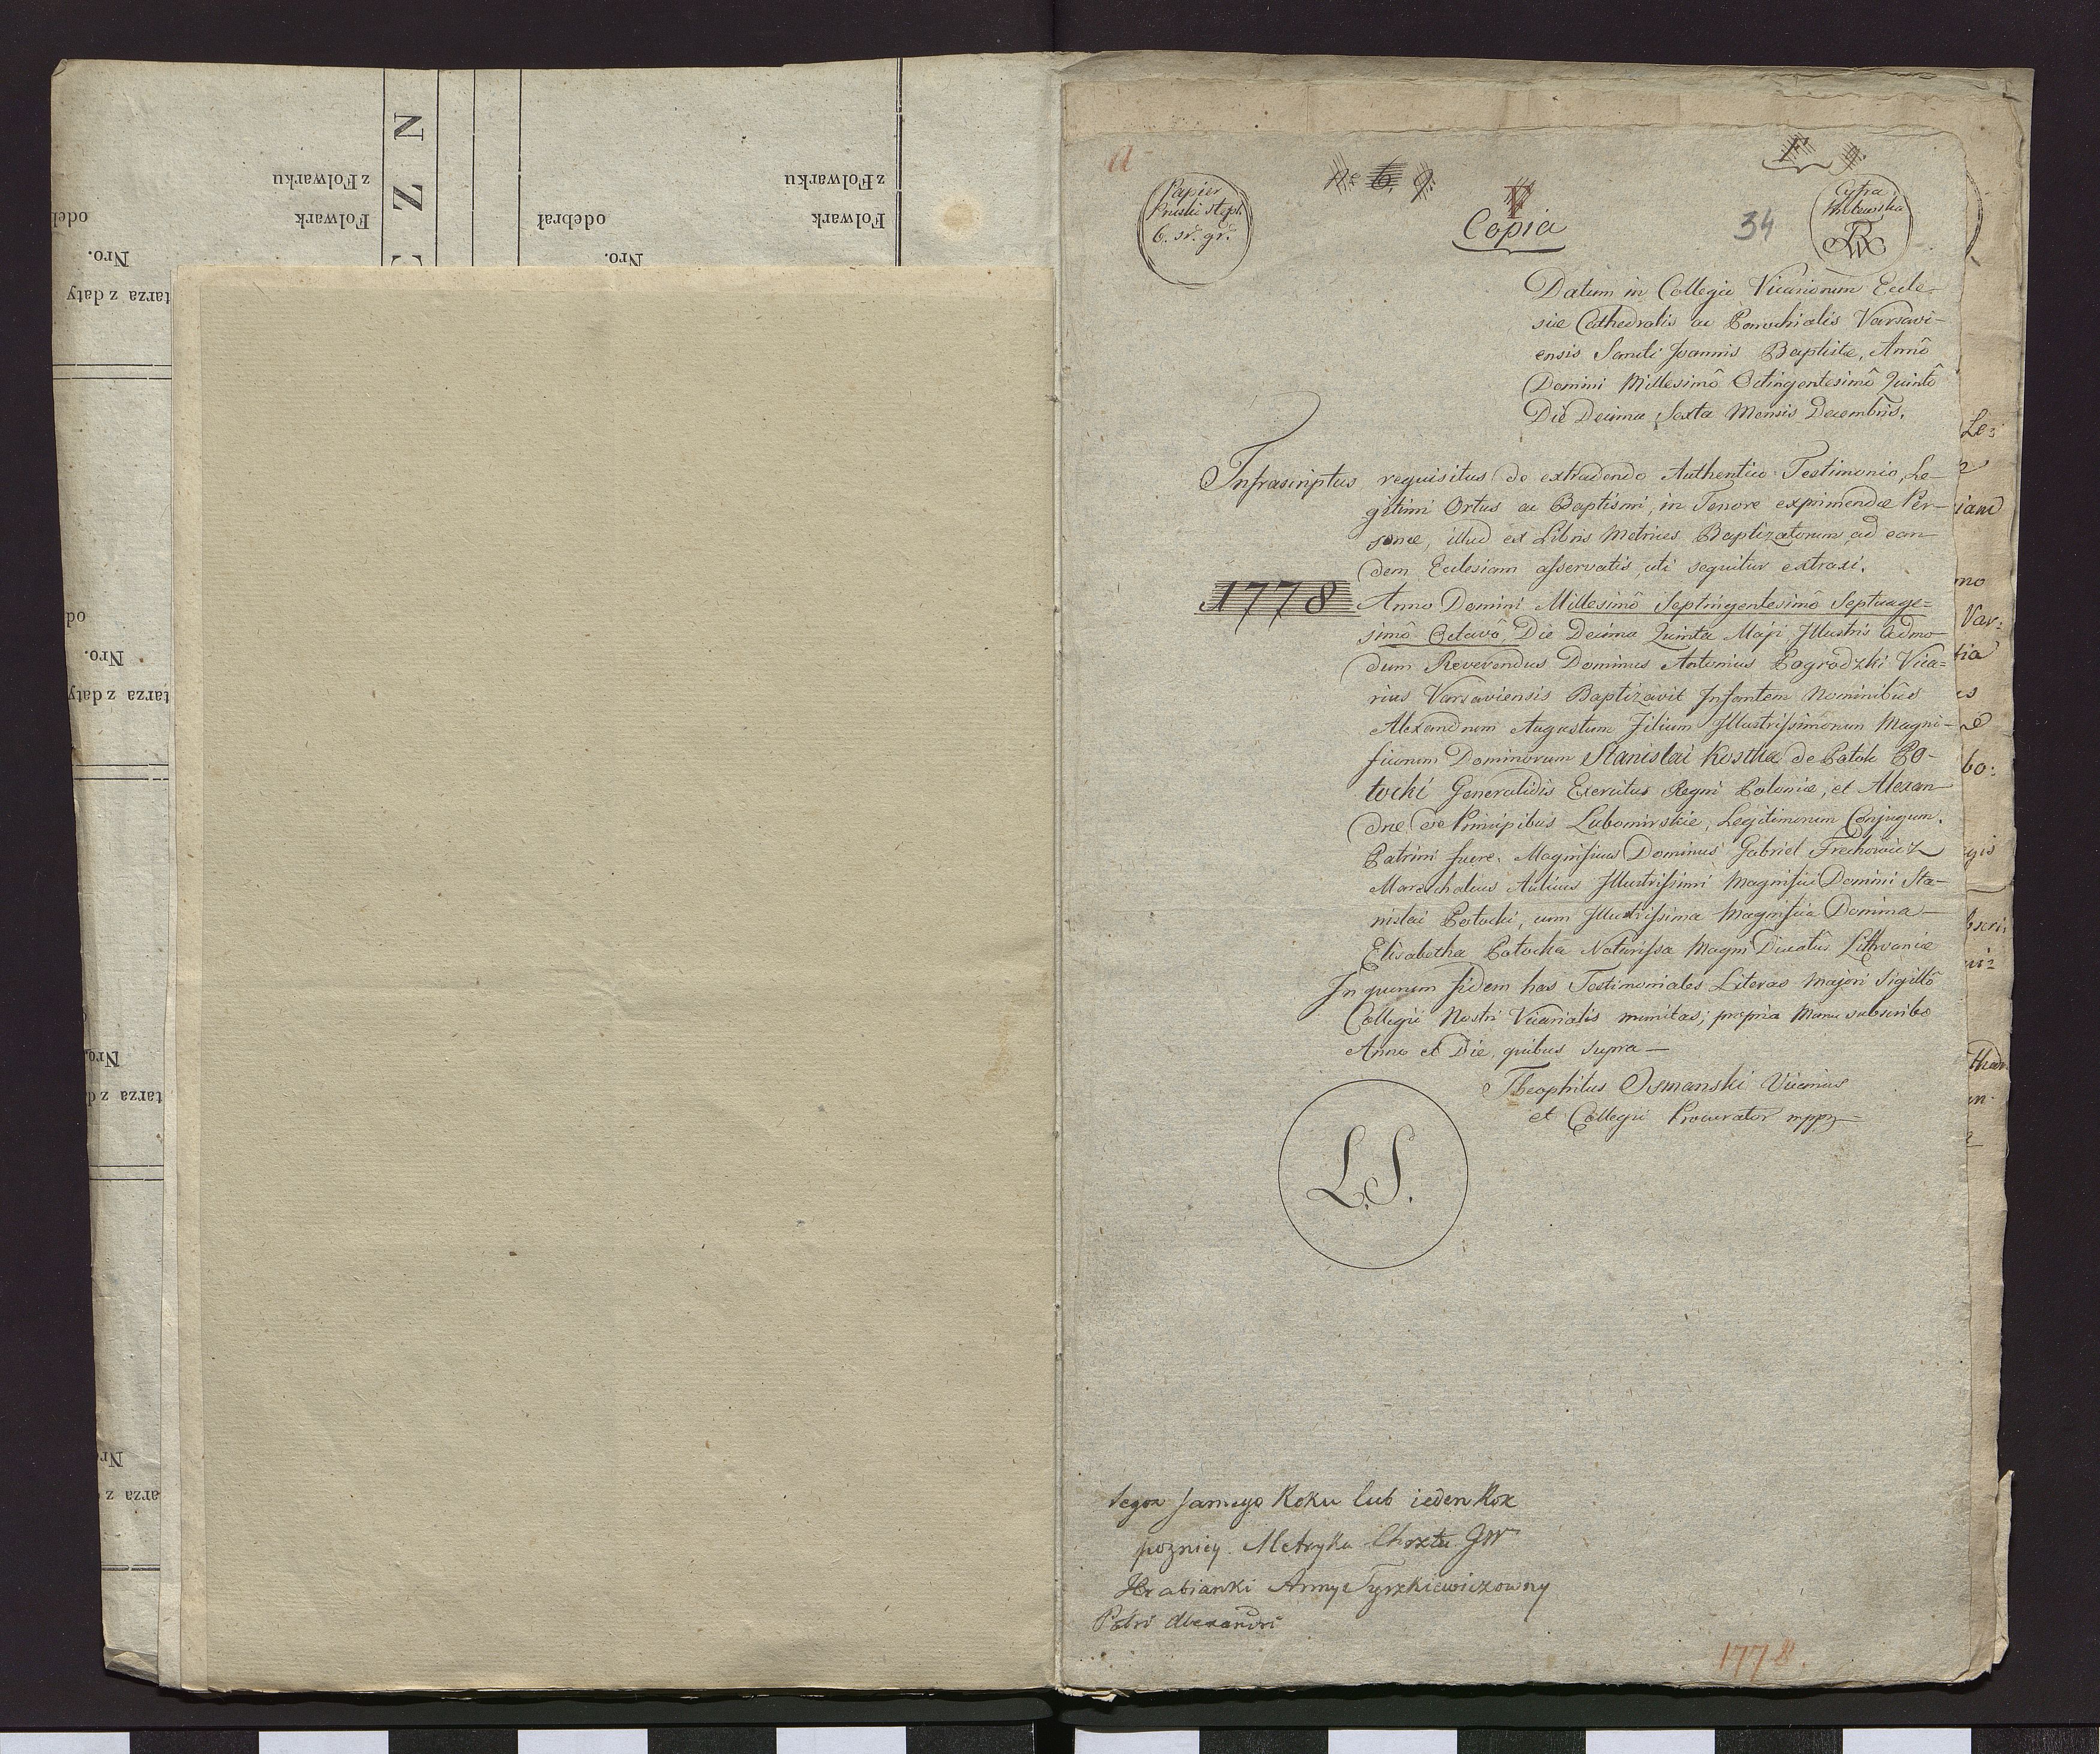 N Z
z Folwarku
Folwark
odebrał
Nro.
z Folwarku
Folwark
Nro.
tarza z daty
Nro.
tarza z daty
Nro.
tarza z d
Nr
arza z
a
No 6, 9.
9.
Papier
Pruski stęp.
6. sr. gr.
V
Copia
34
Cyfra
Królewska
Datum in Collegio Vicariorum Eccle-
siæ Cathedralis ac Parochialis Varsavi-
ensis Sancti Joannis Baptistæ, Annô
Domini Millesimô Octingentesimô Quintô
Die Decima Sexta Mensis Decembris.
Infrascriptus requisitus de extradendo Authentico Testimonio, Le-
gitimi Ortus ac Baptismi, in Tenore exprimendæ Per-
sonæ, illud ex Libris Metrices Baptizatorum ad ean
dem Ecclesiam asservatis, uti sequitur extraxi.
1778 Anno Domini Millesimô Septingentesimô Septuage=
simô Octavô, Die Decima Quinta Maji Illustris Admo
dum Reverendus Dominus Antonius Pogrodzki Vica=
rius Varsaviensis Baptizavit Infantem Nominibus
Alexandrum Augustum Filium Illustrissimorum Magni-
ficorum Dominorum Stanislai Kostka de Potok Po-
tocki Generalis Exercitus Regni Poloniæ, et Alexan
dræ de Principibus Lubomirskie, Legitimorum Conjugum.
Patrini fuere. Magnificus Dominus Gabriel Frechowicz
Mareschalcus Aulicus Illustrissimi Magnifici Domini Sta-
nislai Potocki, cum Illustrissima Magnifica Domina
Elisabetha Potocka Notarissa Magni Ducatûs Lithvaniæ
In quorum fidem has Testimoniales Literas majori Sigillô
Collegii Nostri Vicarialis munitas, propria Manu subscribo
Anno et Die, quibus supra —
Theophilus Osmanski Vicarius
et Collegii Procurator mppa
L.S.
tegoż samego Roku lub ieden Rok
pozniey. Metryka Chrztu JW
Hrabianki Anny Tyszkiewiczowny
Petri Alexandri
1778.
Le=
iam
no
Var:
tia
us
bo:
gis